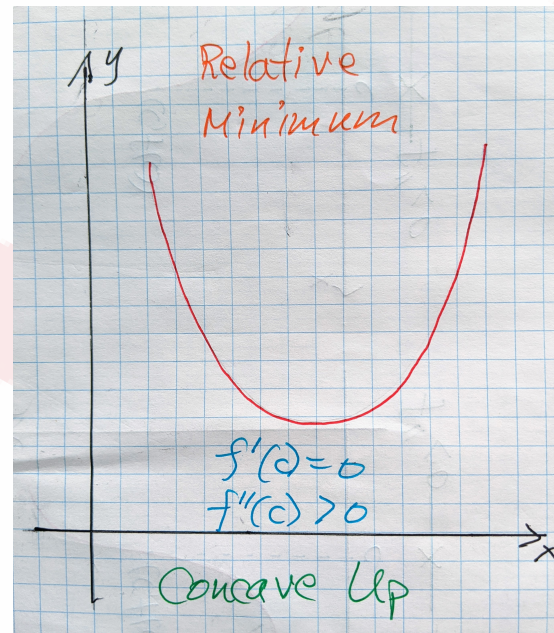 y
Relative
Minimum
f'(c)=0
f''(c)>0
x
Concave Up